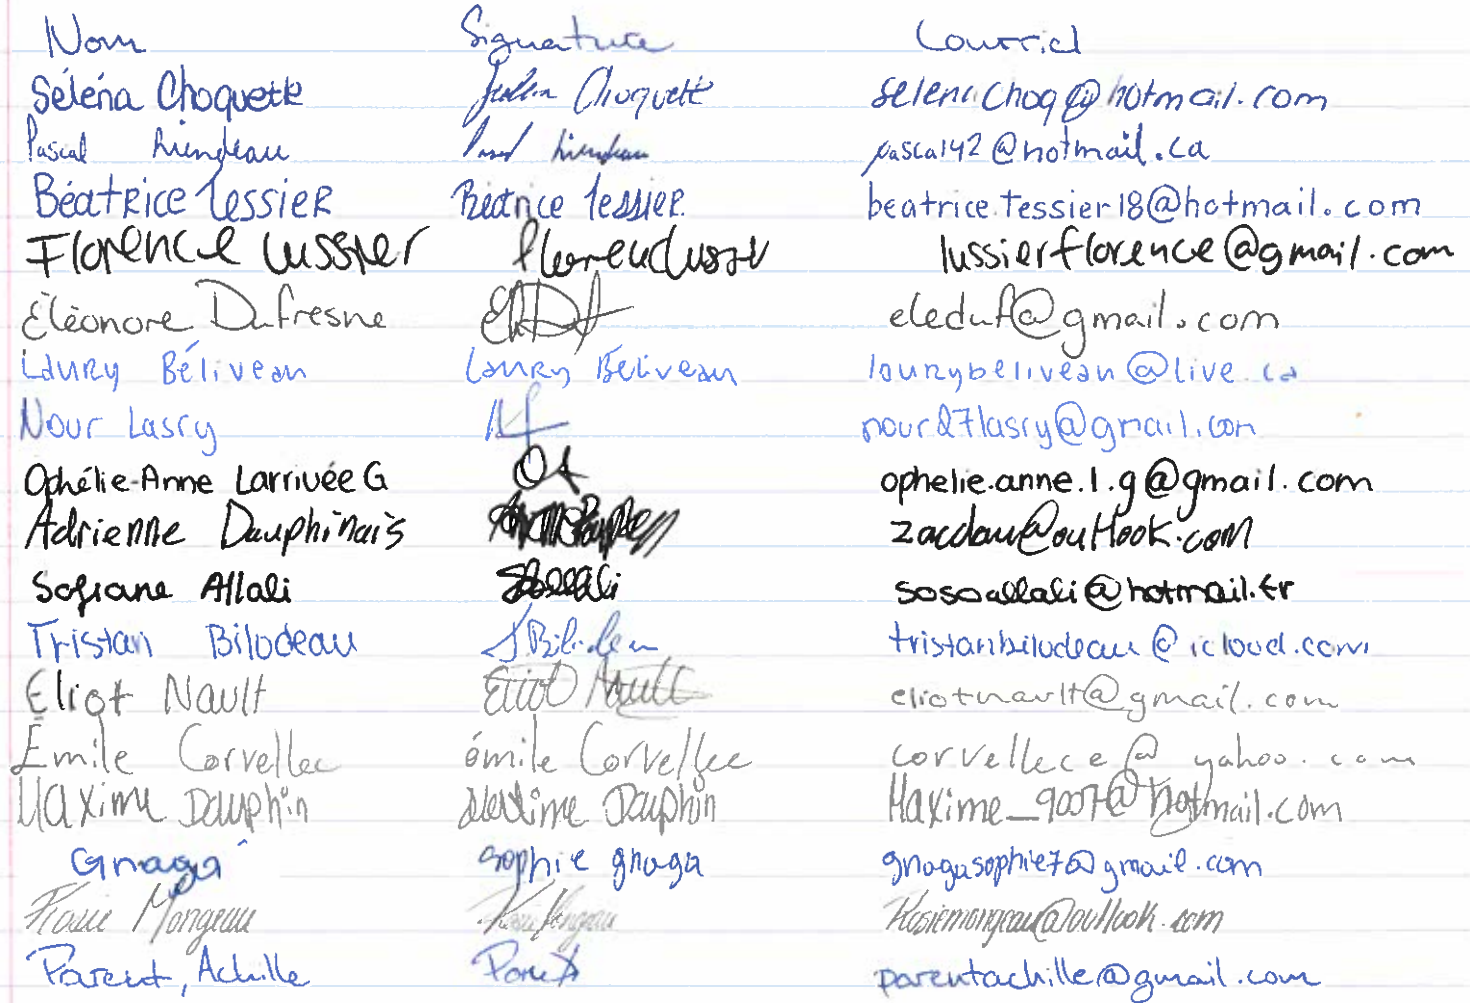 Nom Signature Courriel
Séléna Choquette Choquette selenachoq@hotmail.com
Pascal Riendeau pascal42@hotmail.ca
Béatrice Tessier Béatrice Tessier beatrice.tessier18@hotmail.com
Florence Lussier lussierflorence@gmail.com
Éléonore Dufresne eleduf@gmail.com
Laury Béliveau Laury Béliveau laurybeliveau@live.ca
Nour Lasry nour27lasry@gmail.com
Ophélie-Anne Larrivée G OA ophelie.anne.l.g@gmail.com
Adrienne Dauphinais zacdau@outlook.com
Sofiane Allali sosoallali@hotmail.fr
Tristan Bilodeau T Bilodeau tristanbilodeau@icloud.com
Eliot Nault Eliot Nault eliotnault@gmail.com
Émile Corvellec émile Corvellec corvellece@yahoo.com
Maxime Dauphin Maxime Dauphin Maxime_9007@hotmail.com
Gnaga sophie gnaga gnagasophie7@gmail.com
Rosie Mongeau Rosiemongeau@outlook.com
Parent, Achille Parent parentachille@gmail.com